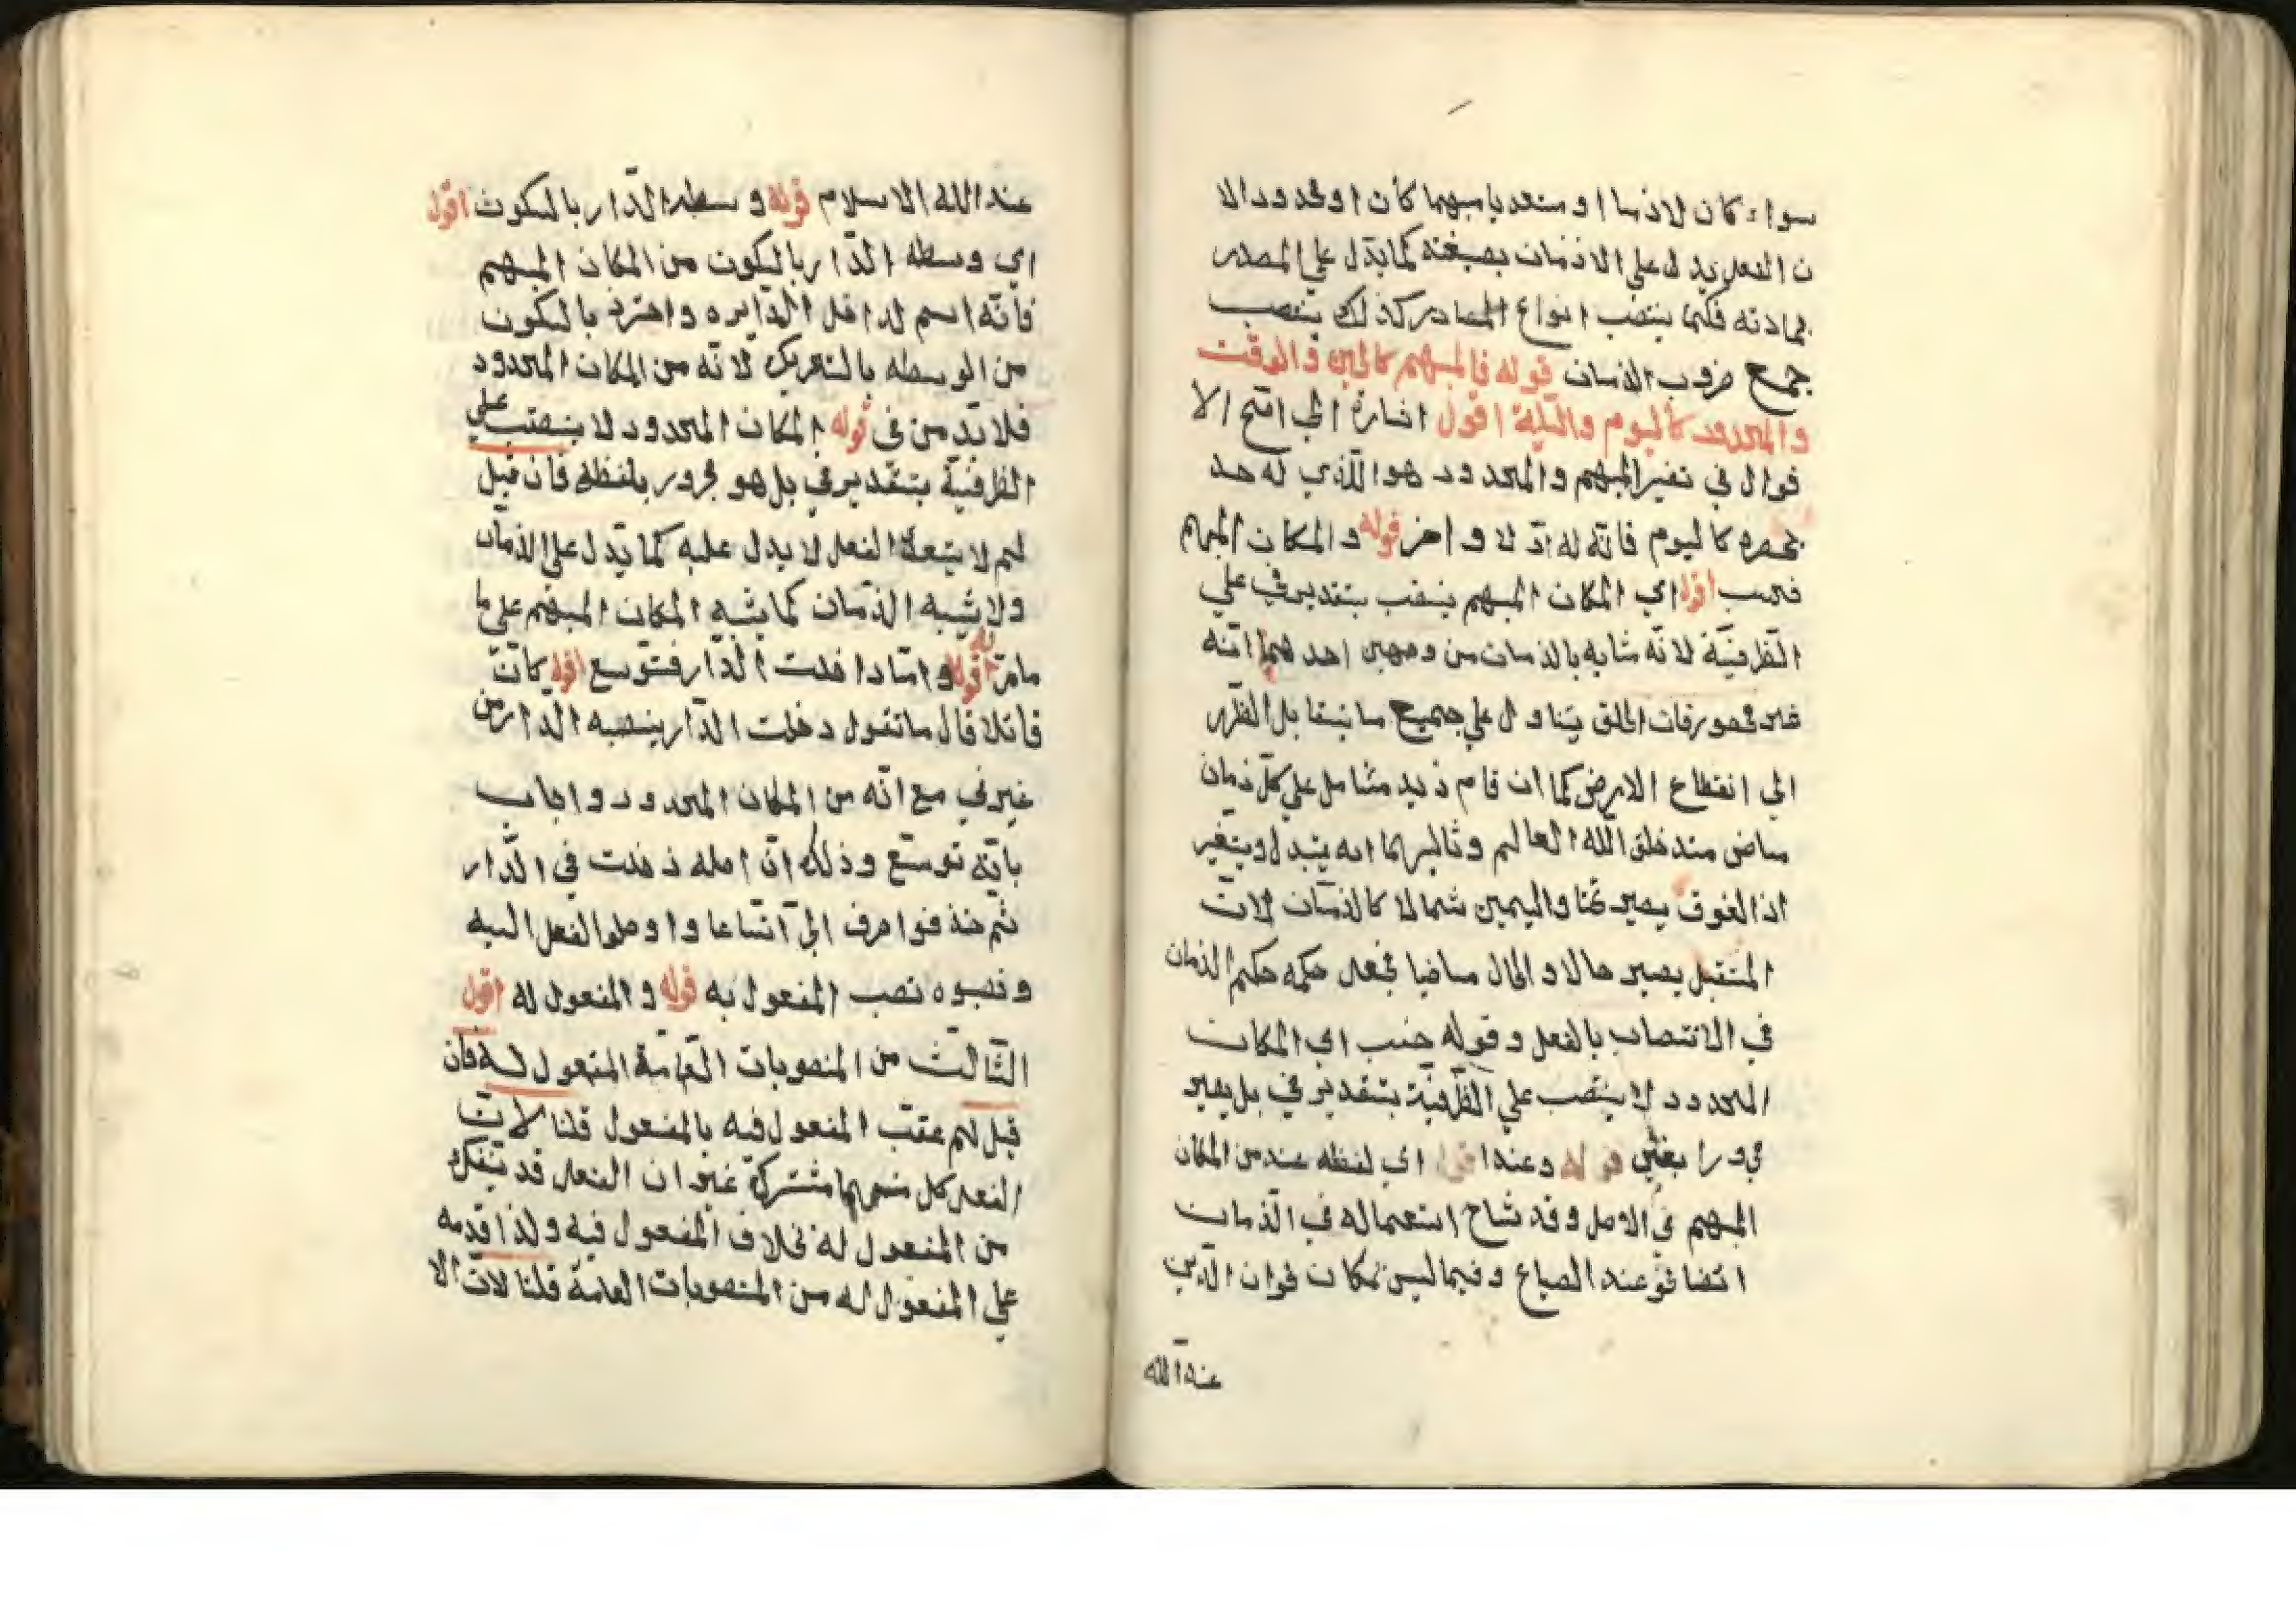 سواء كان لازما او متعديا مبهما كان او محدود الا
ن الفعل يدل على الازمان بصيغته كما يدل علي المصدر
بمادته فكما ينتصب انواع المصادر كذلك ينتصب
جمع ضروب الزمان قوله فالمبهم كالحين والوقت
والمحدود كاليوم والليلة اقول اشارة الي اصح الا
قوال في تفسير المبهم والمحدود هو الذي له حد
يحصره كاليوم فانه له اولا واخر قوله والمكان المبهم
فحسب اقول اي المكان المبهم ينصب بتقدير في علي
الظرفية لانه شابه بالزمان من وجهين احدهما انه
غير محصور فان الخلق يتناول علي جميع ما يتقابل الظهر
الي انقطاع الارض كما ان قام زيد مشامل علي كل زمان
ماض منذ خلق الله العالم وثاليهما انه يتبدل ويتغير
اذ الفوق يصير تحتا واليمين شمالا كالزمان لان
المتقبل يصير حالا والحال ماضيا فجعل حكمه حكم الزمان
في الانتصاب بالفعل وقوله حسب اي المكان
المحدود لا ينتصب علي الظرفية بتقدير في بل يصير
مجرورا بفي قوله وعند اقول اي لفظه عند من المكان
المبهم في الاصل وقد شاح استعماله في الزمان
اتضا نحو عند الصباح وفيما ليس بمكان نحو ان الدين
عند الله
عند الله الاسلام قوله وسطه الدار بالسكون اقول
اي وسطه الدار بالسكون من المكان المبهم
فانه اسم لداخل الدايره واحترز بالسكون
من الوسطه بالتحريك لانه من المكان المحدود
فلا بد من في قوله المكان المحدود لا ينصب علي
الظرفية بتقدير في بل هو مجرور بلفظه فان قيل
لم لا يتبعه الفعل لا يدل عليه كما يدل علي الزمان
ولا يشبه الزمان كما يشبه المكان المبهم علي ما
مامر قوله واما دا خلت الدار فتوسع اقول كان
قائلا قال ما تقول دخلت الدار ينصبه الدار من
غير في مع انه من المكان المحدود واجاب
بانه توسع وذلك ان اصله دخلت في الدار
ثم حذفوا حرف الي اتساعا واوصلوا الفعل اليه
ونصبوه نصب المفعول به قوله والمفعول له اقول
الثالث من المنصوبات العامة المفعول له فان
قيل لم عقب المفعول فيه بالمفعول قلنا لان
الفعل كل منهما مشتركة غير ان الفعل قد ينفك
من المفعول له بخلاف المفعول فيه ولذا قدمه
علي المفعول له من المنصوبات العامة قلنا لان الا